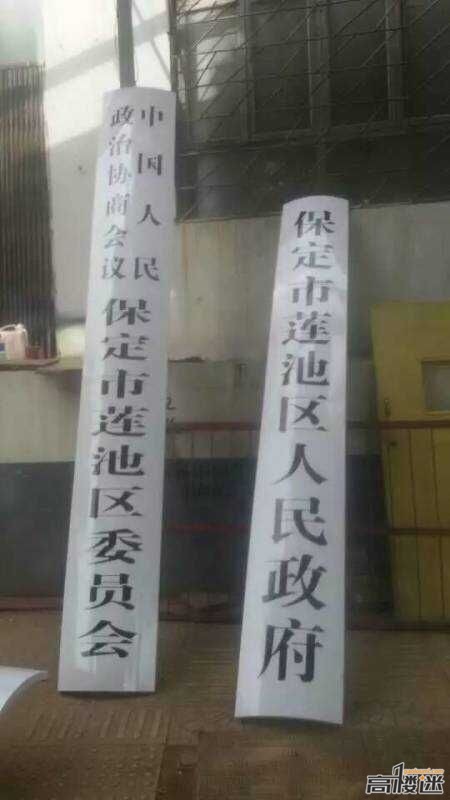 中国人民
政治协商会议
保定市莲池区委员会
保定市莲池区人民政府
高楼迷